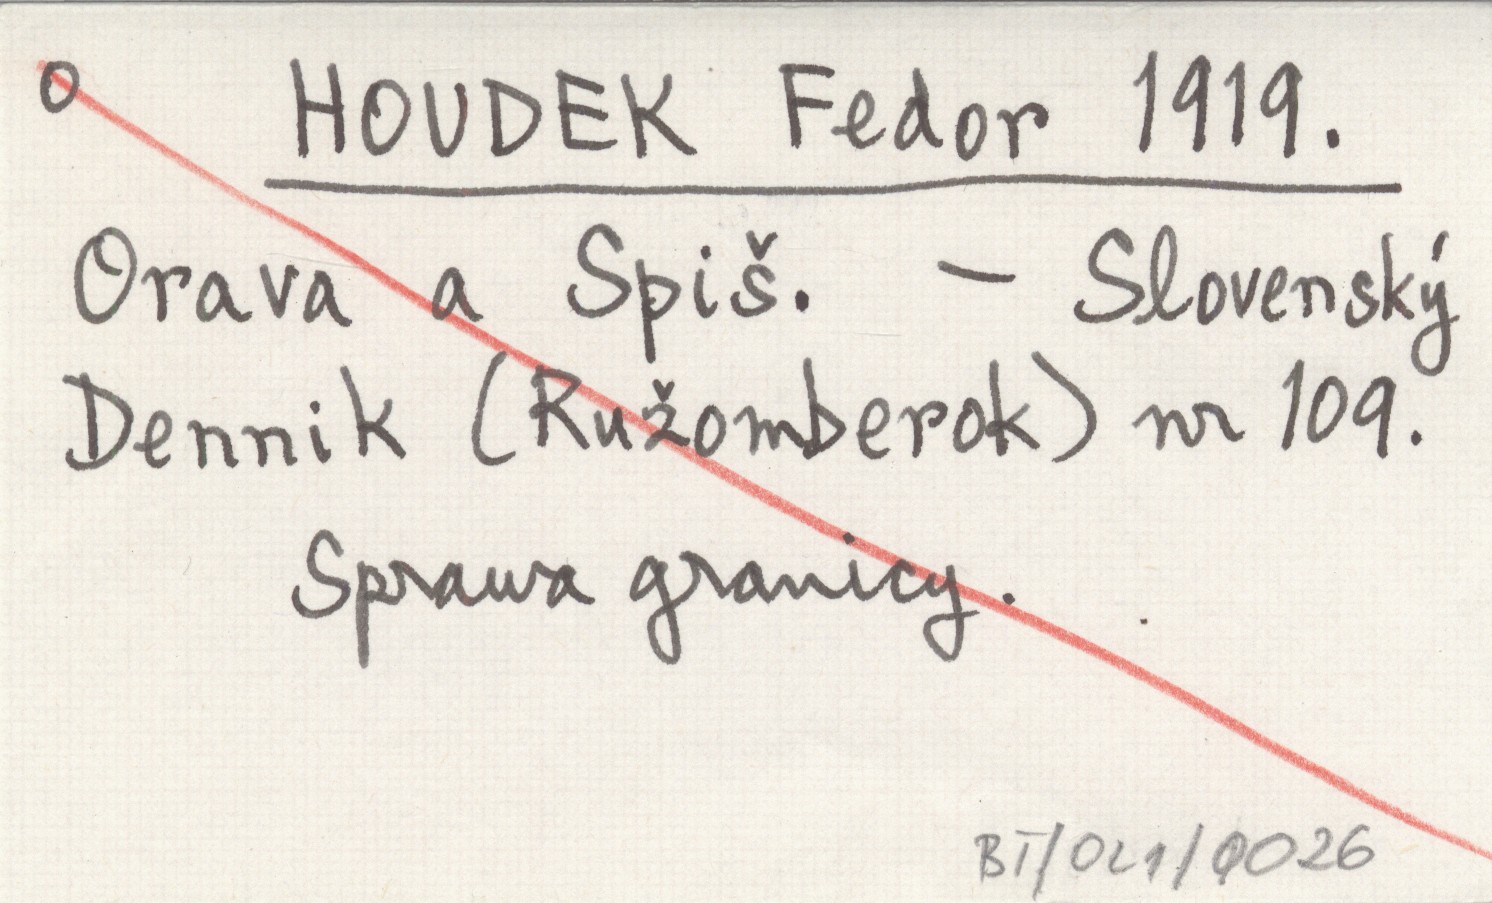 O
HOUDEK Fedor 1919.
Orava a Spiš. – Slovenský
Dennik (Ružomberok) nr 109.
Sprawa granicy.
BI/OL1/0026